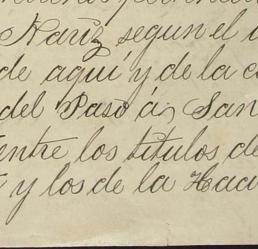 Naríz segun el
de aquí y de la
del Paso á San
entre los títulos de
y los de la Haci